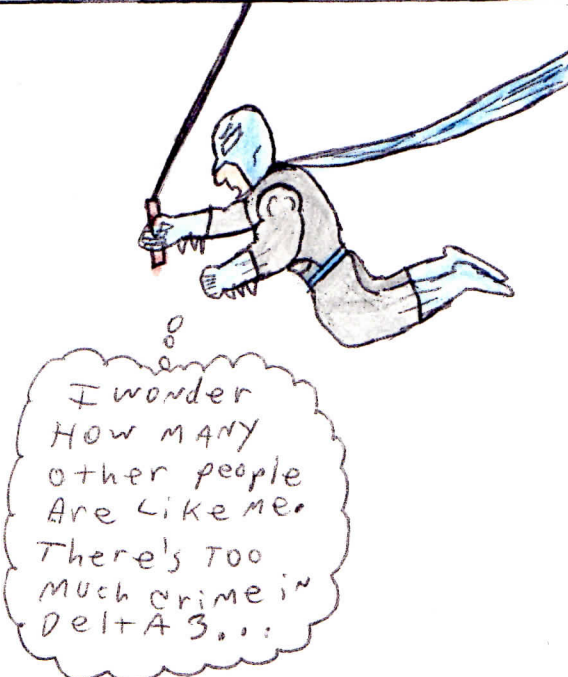 I wonder
HOW MANY
other people
Are Like me.
There's TOO
Much crime in
DeltA 3...